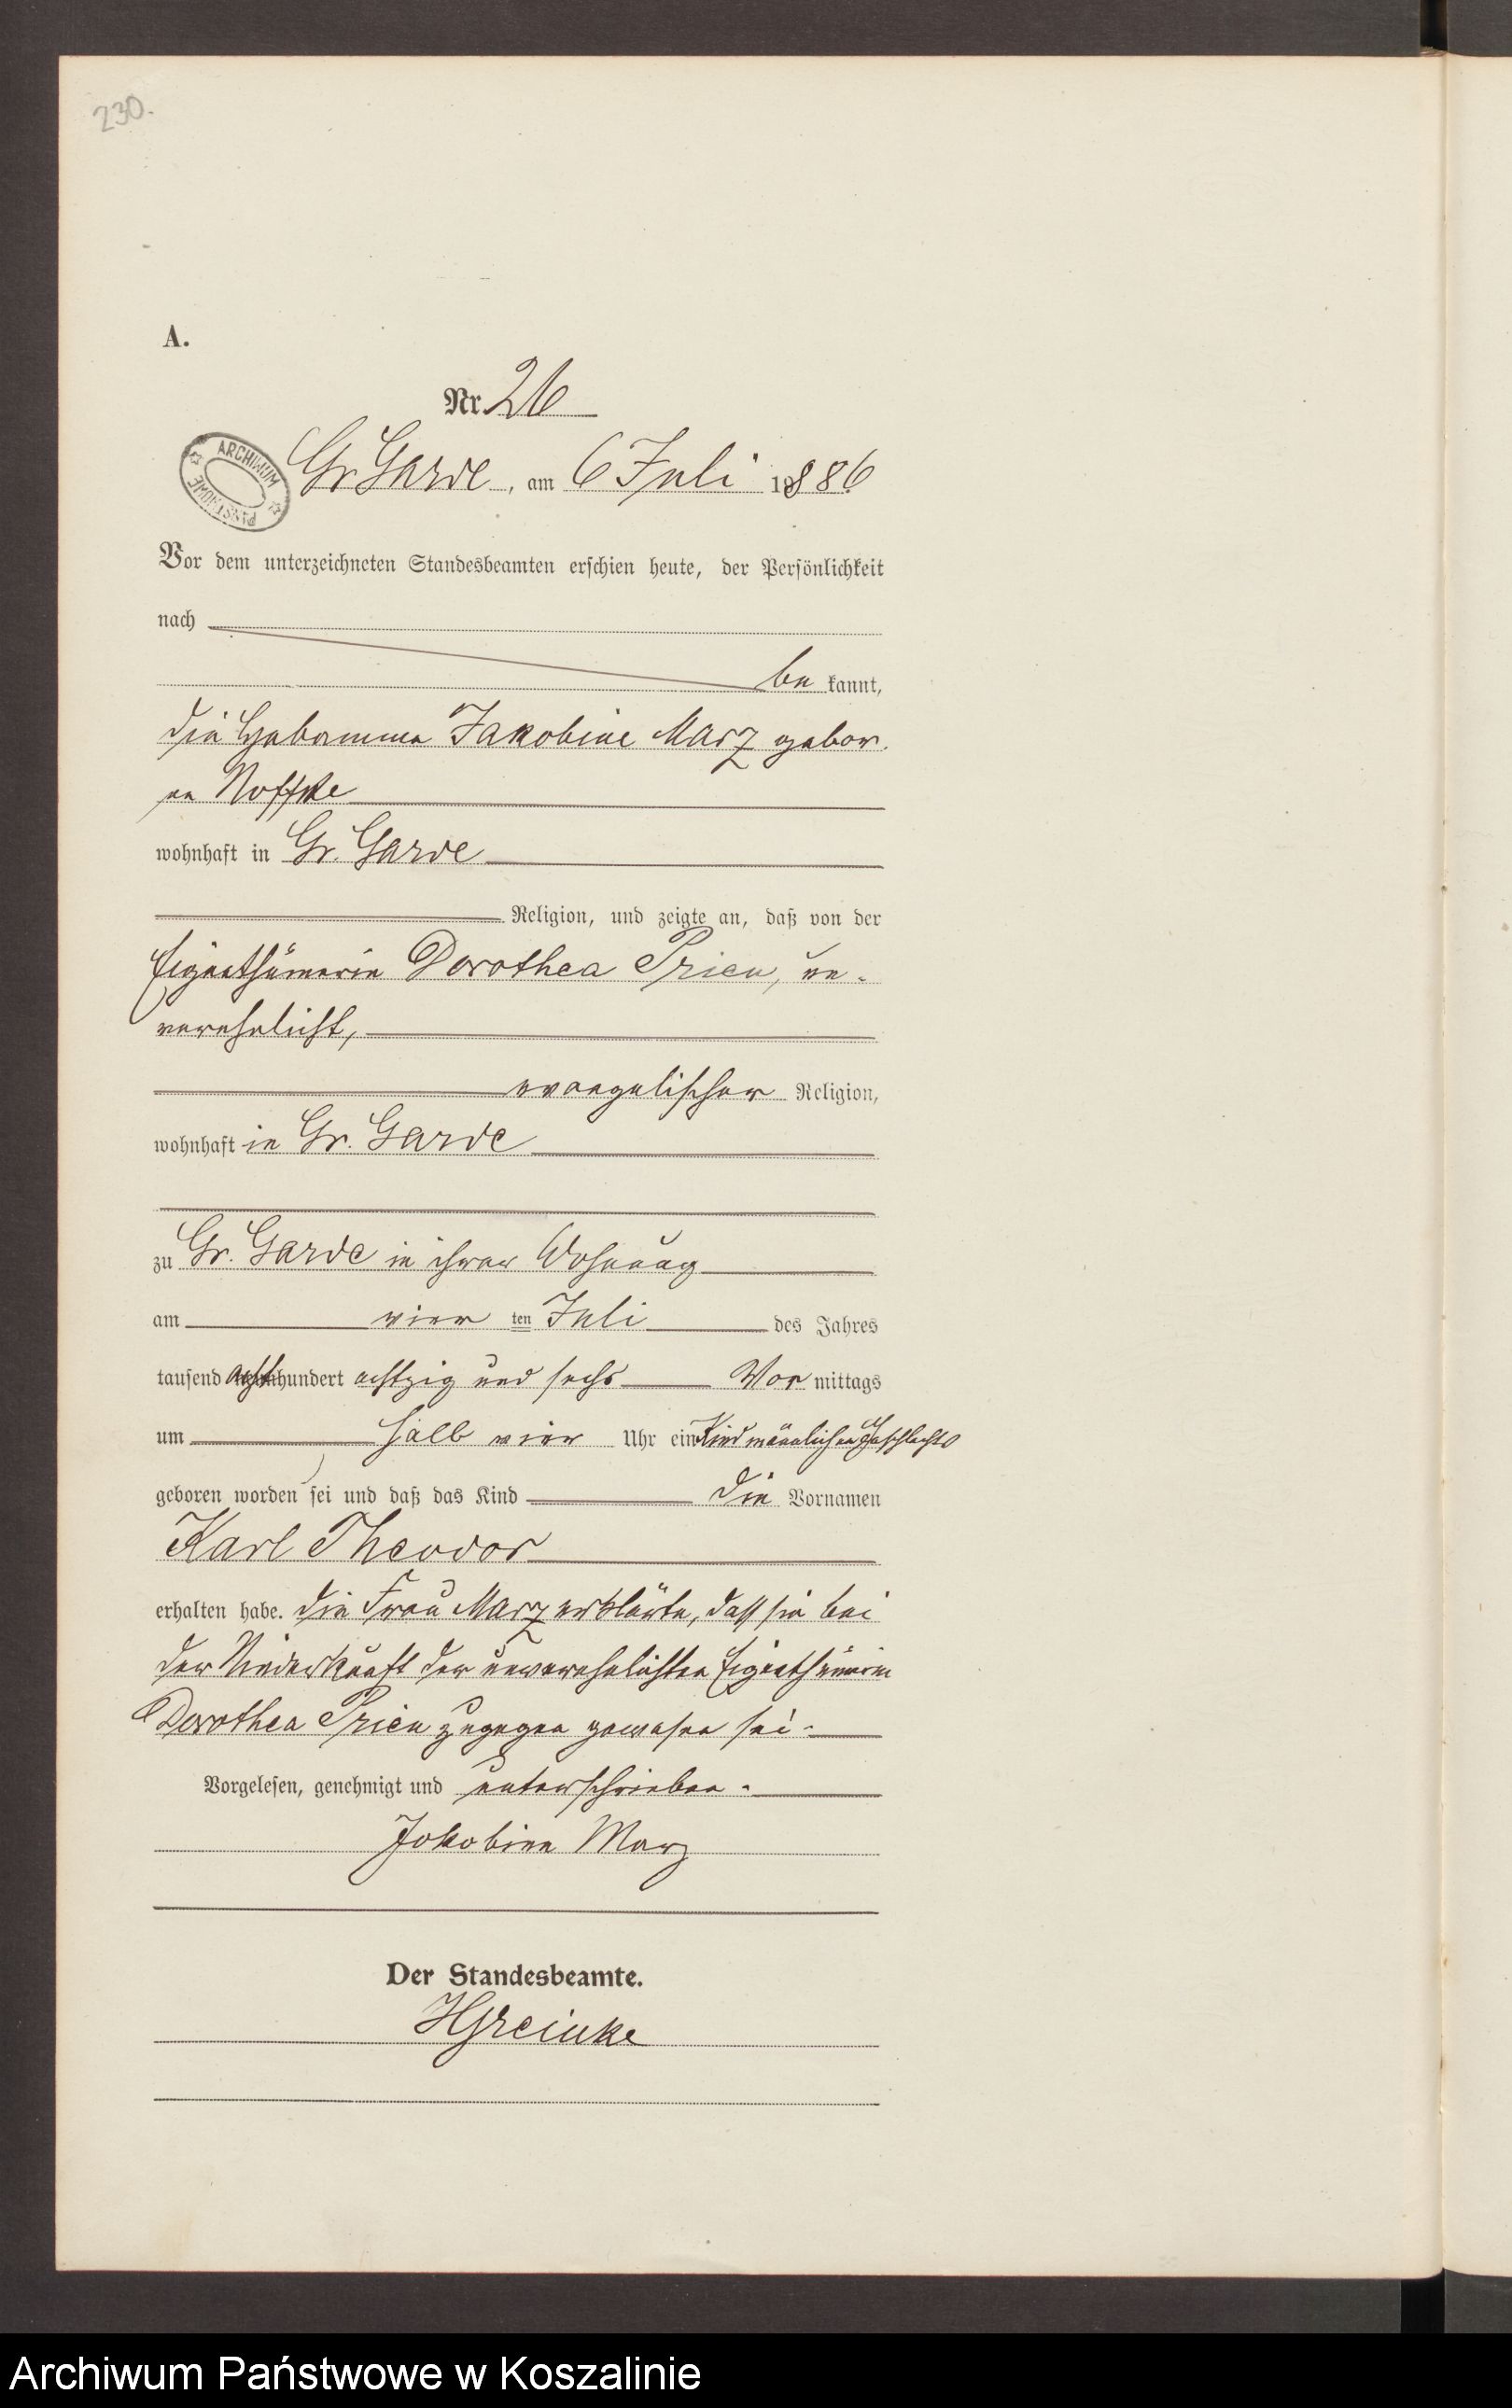 230.
A.
Nr. 26
ARCHIWUM PAŃSTWOWE
Gr Garde, am 6 Juli 1886
Vor dem unterzeichneten Standesbeamten erschien heute, der Persönlichkeit
nach
be kannt,
die Hebamme Jakobine Marz gebor.
en Noffke
wohnhaft in Gr. Garde
Religion, und zeigte an, daß von der
Eigenthümerin Dorothea Prien, un-
verehelicht,
evangelischer Religion,
wohnhaft in Gr. Garde
zu Gr. Garde in ihrer Wohnung
am vier ten Juli des Jahres
tausend acht hundert achtzig und sechs Vor mittags
um halb vier Uhr ein Kind männlichen Geschlechts
geboren worden sei und daß das Kind die Vornamen
Karl Theodor
erhalten habe. Die Frau Marz erklärte, daß sie bei
der Niederkunft der unverehelichten Eigenthümerin
Dorothea Prien zugegen gewesen sei.
Vorgelesen, genehmigt und unterschrieben.
Jakobine Marz
Der Standesbeamte.
HGreinke
Archiwum Państwowe w Koszalinie